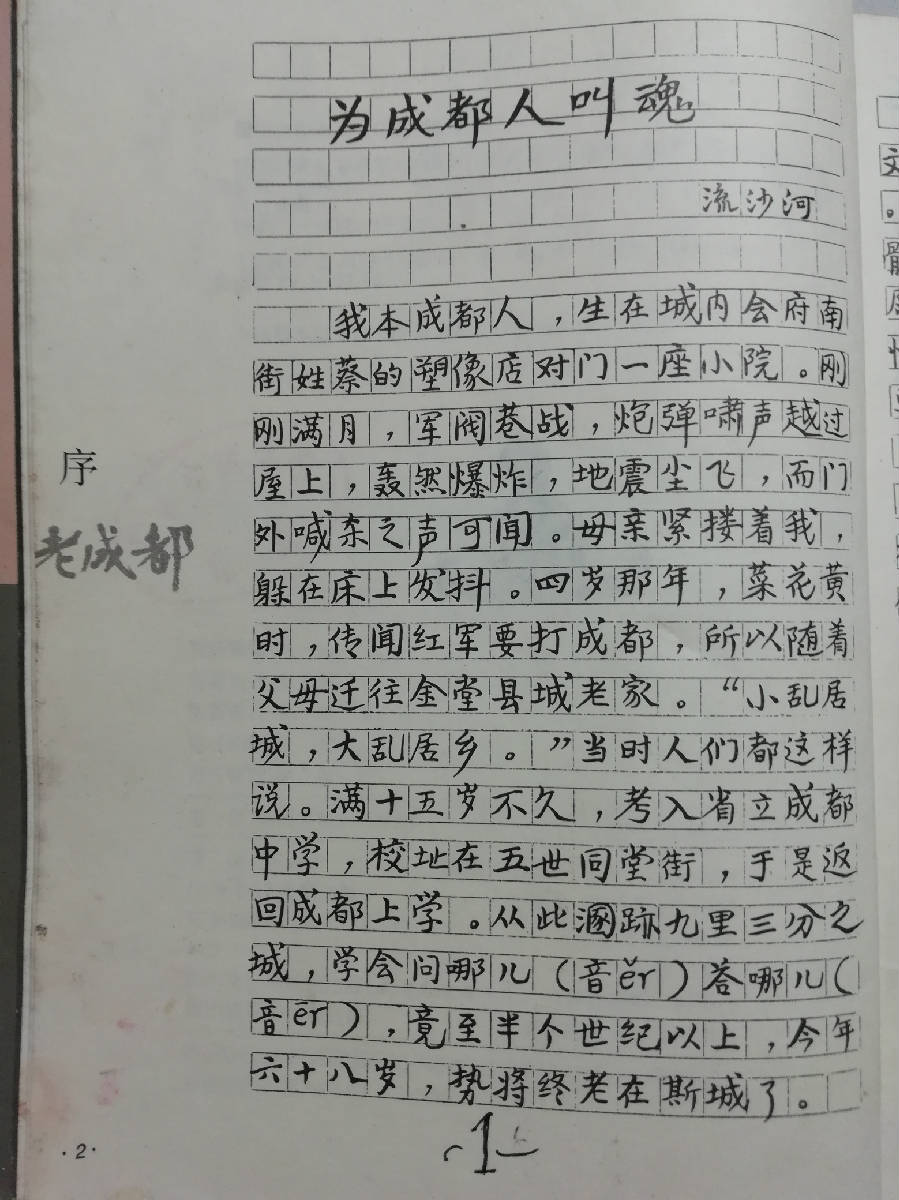 为成都人叫魂
流沙河
我本成都人，生在城内会府南
街姓蔡的塑像店对门一座小院。刚
刚满月，军阀巷战，炮弹啸声越过
屋上，轰然爆炸，地震尘飞，而门
外喊杀之声可闻。母亲紧搂着我，
躲在床上发抖。四岁那年，菜花黄
时，传闻红军要打成都，所以随着
父母迁往金堂县城老家。“小乱居
城，大乱居乡。”当时人们都这样
说。满十五岁不久，考入省立成都
中学，校址在五世同堂街，于是返
回成都上学。从此溷跡九里三分之
城，学会问哪儿（音ěr）答哪儿（
音ēr），竟至半个世纪以上，今年
六十八岁，势将终老在斯城了。
1
序
老成都
·2·